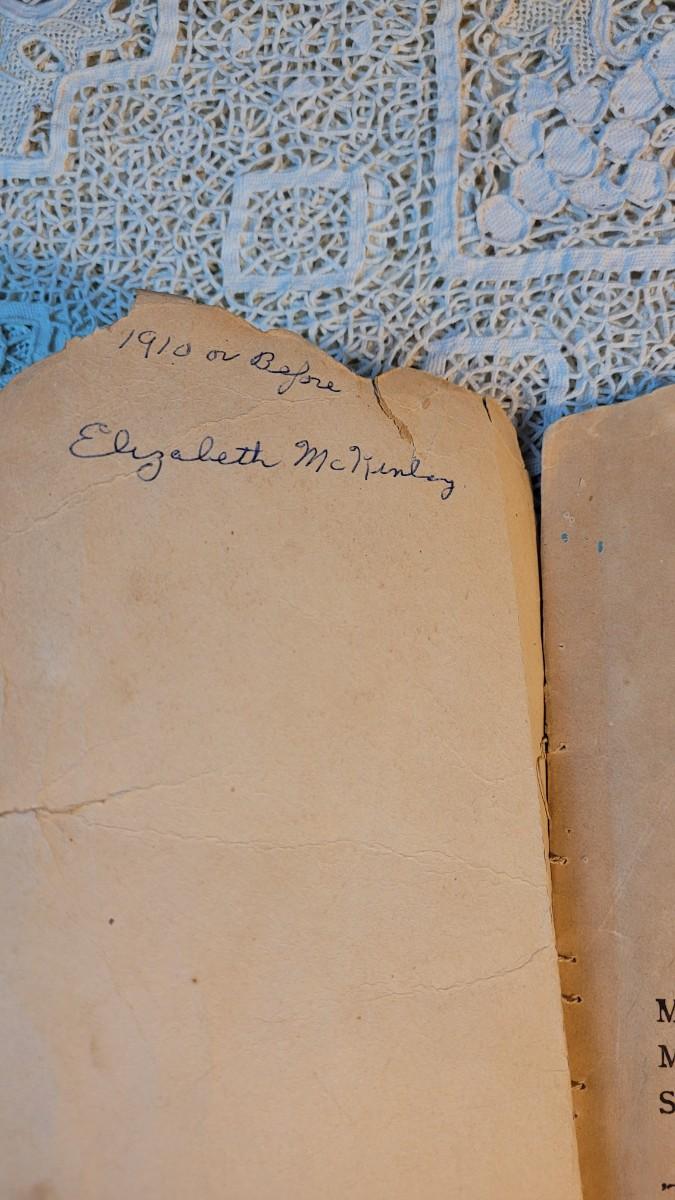 1910 or Before
Elizabeth McKinley
M
M
S